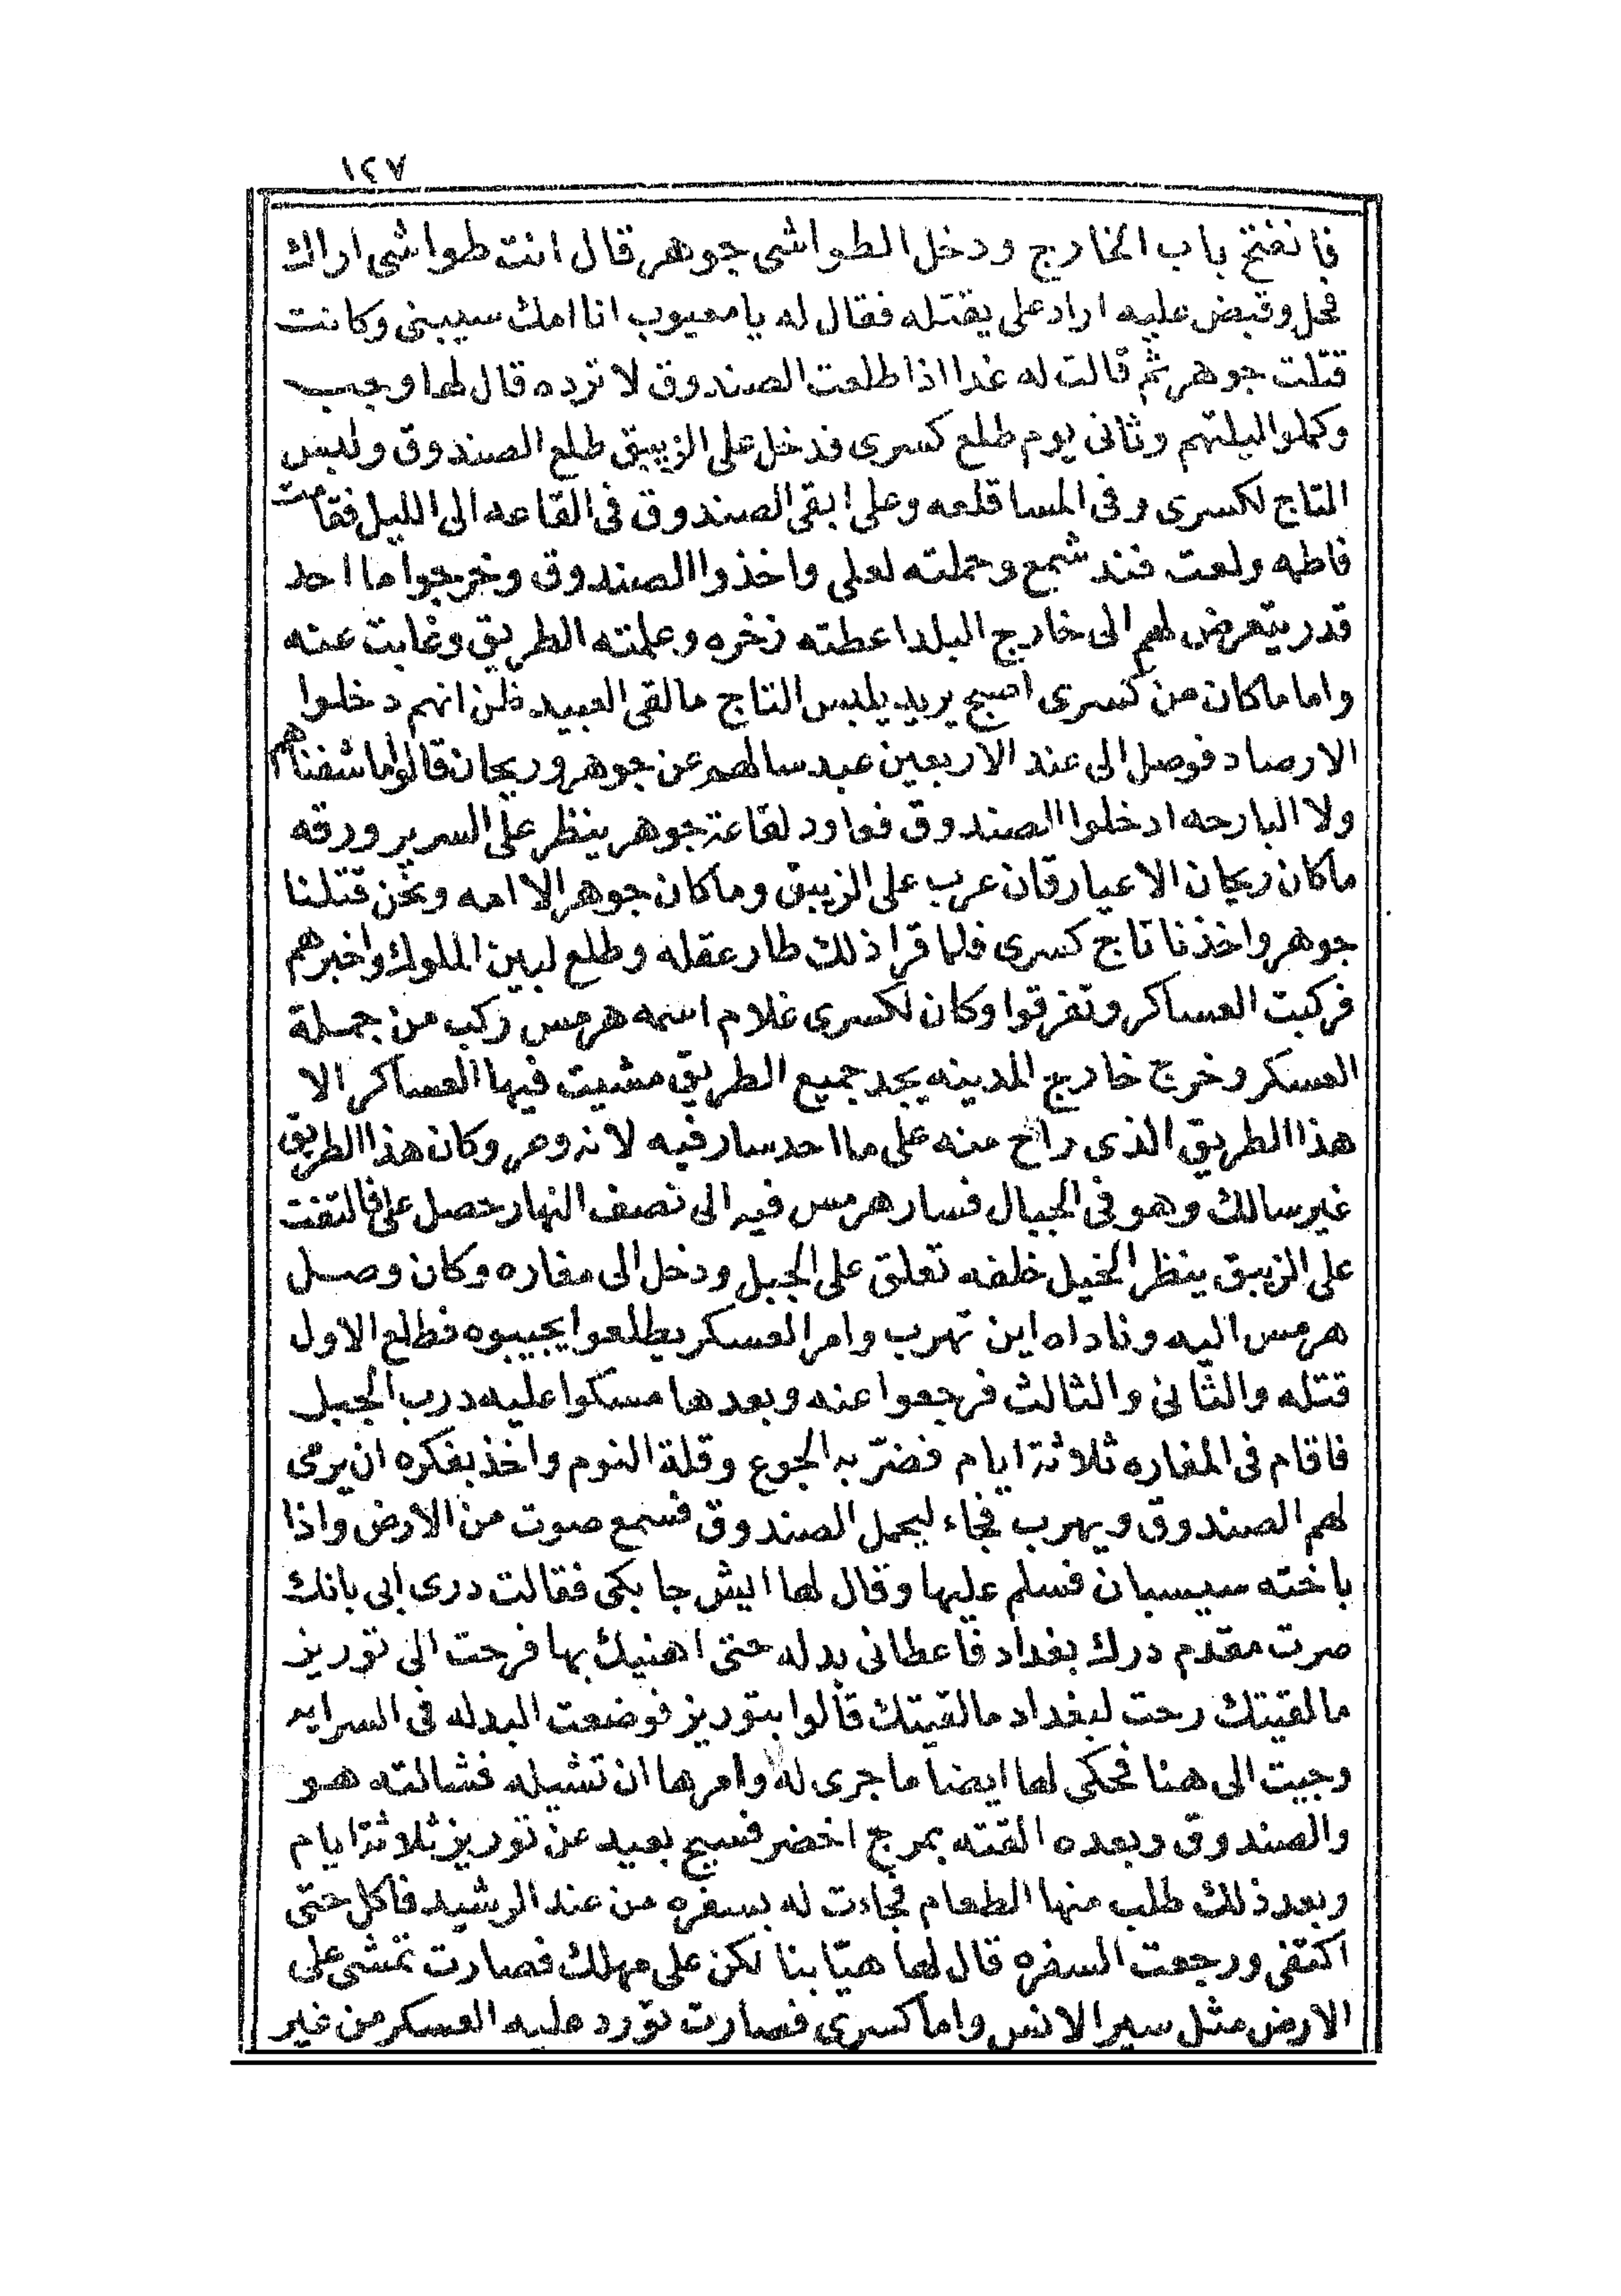 ١٤٧
فانفتح باب الخارج ودخل الطواشى جوهر قال انت طواشى اراك
فحل وقبض عليه اراد على يقتله فقال له يا معيوب انا امك سيبنى وكانت
قتلت جوهر ثم قالت له غدا اذا طلعت الصندوق لا ترده قال لها وجب
وكملوا ليلتهم وثانى يوم طلع كسرى فدخل على الزيبق طلع الصندوق ولبس
التاج لكسرى وفى المسا قلعه وعلى ابقى الصندوق فى القاعه الى الليل فقامت
فاطمه ولعت فند شمع وحملته لعلى واخذوا الصندوق وخرجوا ما احد
قدر يتعرض لهم الى خارج البلد اعطته زخره وعلمته الطريق وغابت عنه
واما ماكان من كسرى اصبح يريد يلبس التاج مالقى العبيد ظن انهم دخلوا
الارصاد فوصل الى عند الاربعين عبد سالهم عن جوهر وريحان قالوا ما شفناهم
ولا البارحه ادخلوا الصندوق فعاود لقاعة جوهر ينظر على السرير ورقه
ماكان ريحان الا عيار قان عرب على الزيبق وماكان جوهر الا امه ونحن قتلنا
جوهر واخذنا تاج كسرى فلما قرا ذلك طار عقله وطلع لبين الملوك واخبرهم
فركبت العساكر وتفرقوا وكان لكسرى غلام اسمه هرمس ركب من جملة
العسكر وخرج خارج المدينه يجد جميع الطريق مشيت فيها العساكر الا
هذا الطريق الذى راح منه على ما احد سار فيه لانه وعر وكان هذا الطريق
غير سالك وهو فى الجبال فسار هرمس فيه الى نصف النهار حصل على فالتفت
على الزيبق ينظر الخيل خلفه تعلق على الجبل ودخل الى مغاره وكان وصل
هرمس اليه وناداه اين تهرب وامر العسكر يطلعوا يجيبوه فطلع الاول
قتله والثانى والثالث فرجعوا عنه وبعدها مسكوا عليه درب الجبل
فاقام فى المغاره ثلاثة ايام فضرّ به الجوع وقلة النوم واخذ بفكره ان يرمى
لهم الصندوق ويهرب فجاء ليحمل الصندوق فسمع صوت من الارض واذا
باخته سيسبان فسلم عليها وقال لها ايش جا بكى فقالت درى ابى بانك
صرت مقدم درك بغداد فاعطانى بدله حتى اهنيك بها فرحت الى توريز
مالقيتك رحت لبغداد مالقيتك قالوا بتوريز فوضعت البدله فى السرايه
وجيت الى هنا فحكى لها ايضا ما جرى له وامرها ان تشيله فشالته هو
والصندوق وبعده القته بمرج اخضر فسيح بعيد عن توريز ثلاثة ايام
وبعد ذلك طلب منها الطعام فجاءت له بسفره من عند الرشيد فاكل حتى
اكتفى ورجعت السفره قال لها هيّا بنا لكن على مهلك فصارت تمشى على
الارض مثل سير الانس واما كسرى فصارت تورد عليه العسكر من غير